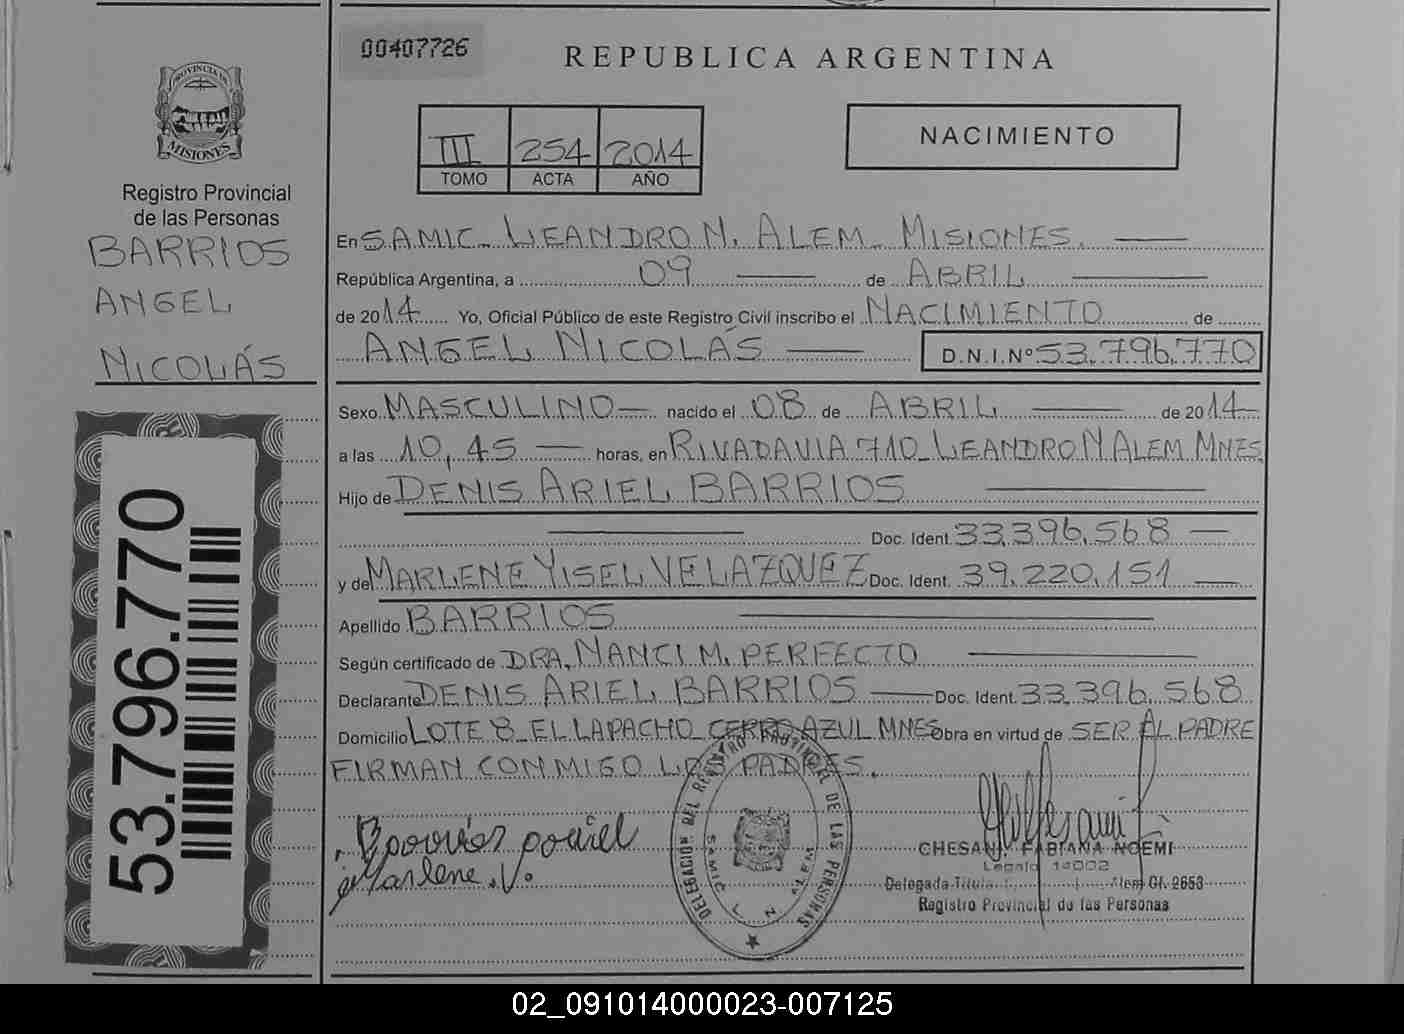 00407726
REPUBLICA ARGENTINA
PROVINCIA DE
MISIONES
Registro Provincial
de las Personas
BARRIOS
ANGEL
NICOLÁS
53.796.770
III 254 2014
TOMO ACTA AÑO
NACIMIENTO
En SAMIC. LEANDRO N. ALEM. MISIONES.
República Argentina, a 09 de ABRIL
de 2014 Yo, Oficial Público de este Registro Civil inscribo el NACIMIENTO de
ANGEL NICOLÁS D.N.I.Nº 53.796.770
Sexo MASCULINO nacido el 08 de ABRIL de 2014
a las 10,45 horas, en RIVADAVIA 710_LEANDRO N ALEM MNES
Hijo de DENIS ARIEL BARRIOS
Doc. Ident. 33.396.568
y de MARLENE YISEL VELAZQUEZ Doc. Ident. 39.220.151
Apellido BARRIOS
Según certificado de DRA. NANCI M. PERFECTO
Declarante DENIS ARIEL BARRIOS Doc. Ident. 33.396.568
Domicilio LOTE 8_EL LAPACHO_CERRO AZUL MNES Obra en virtud de SER EL PADRE
FIRMAN CONMIGO LOS PADRES.
Barrios
Marlene.V.
DELEGACION DEL REGISTRO PROVINCIAL DE LAS PERSONAS
SAMIC L. N. ALEM
CHESANI, FABIANA NOEMI
Legajo 14002
Delegada Alem Of. 2653
Registro Provincial de las Personas
02_091014000023-007125